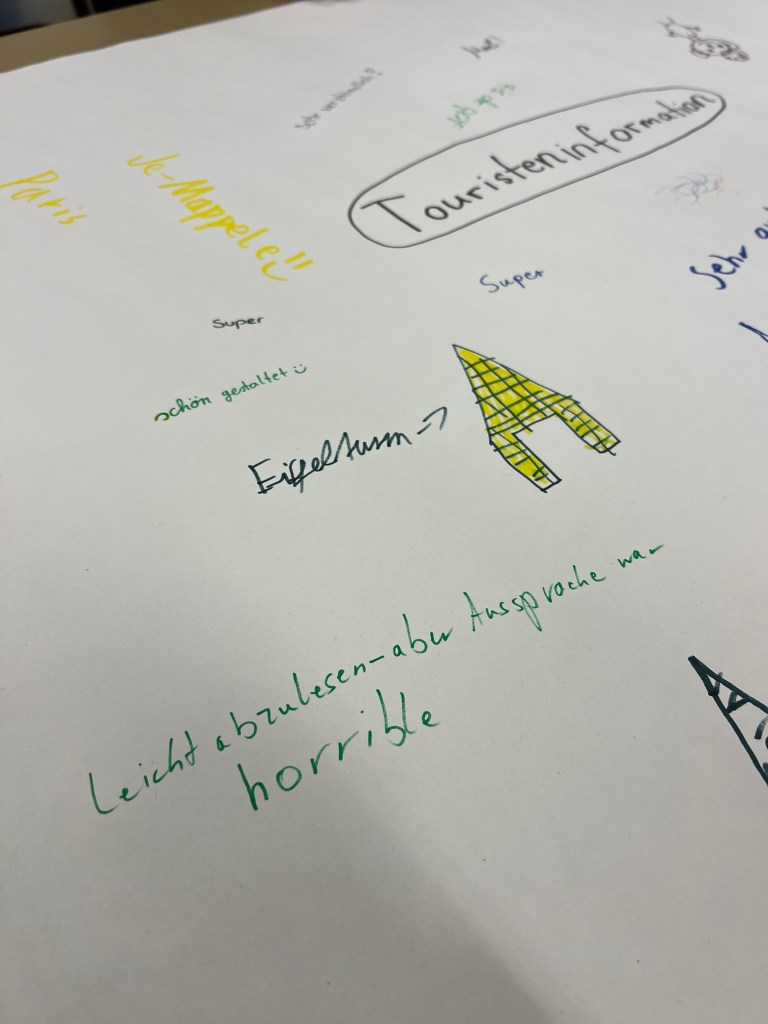 Sehr verständlich!
Touristeninformation
Paris
Je-Mappele!!
Sehr
Super
Super
schön gestaltet :)
Eiffelturm →
Leicht abzulesen - aber Aussprache war
horrible